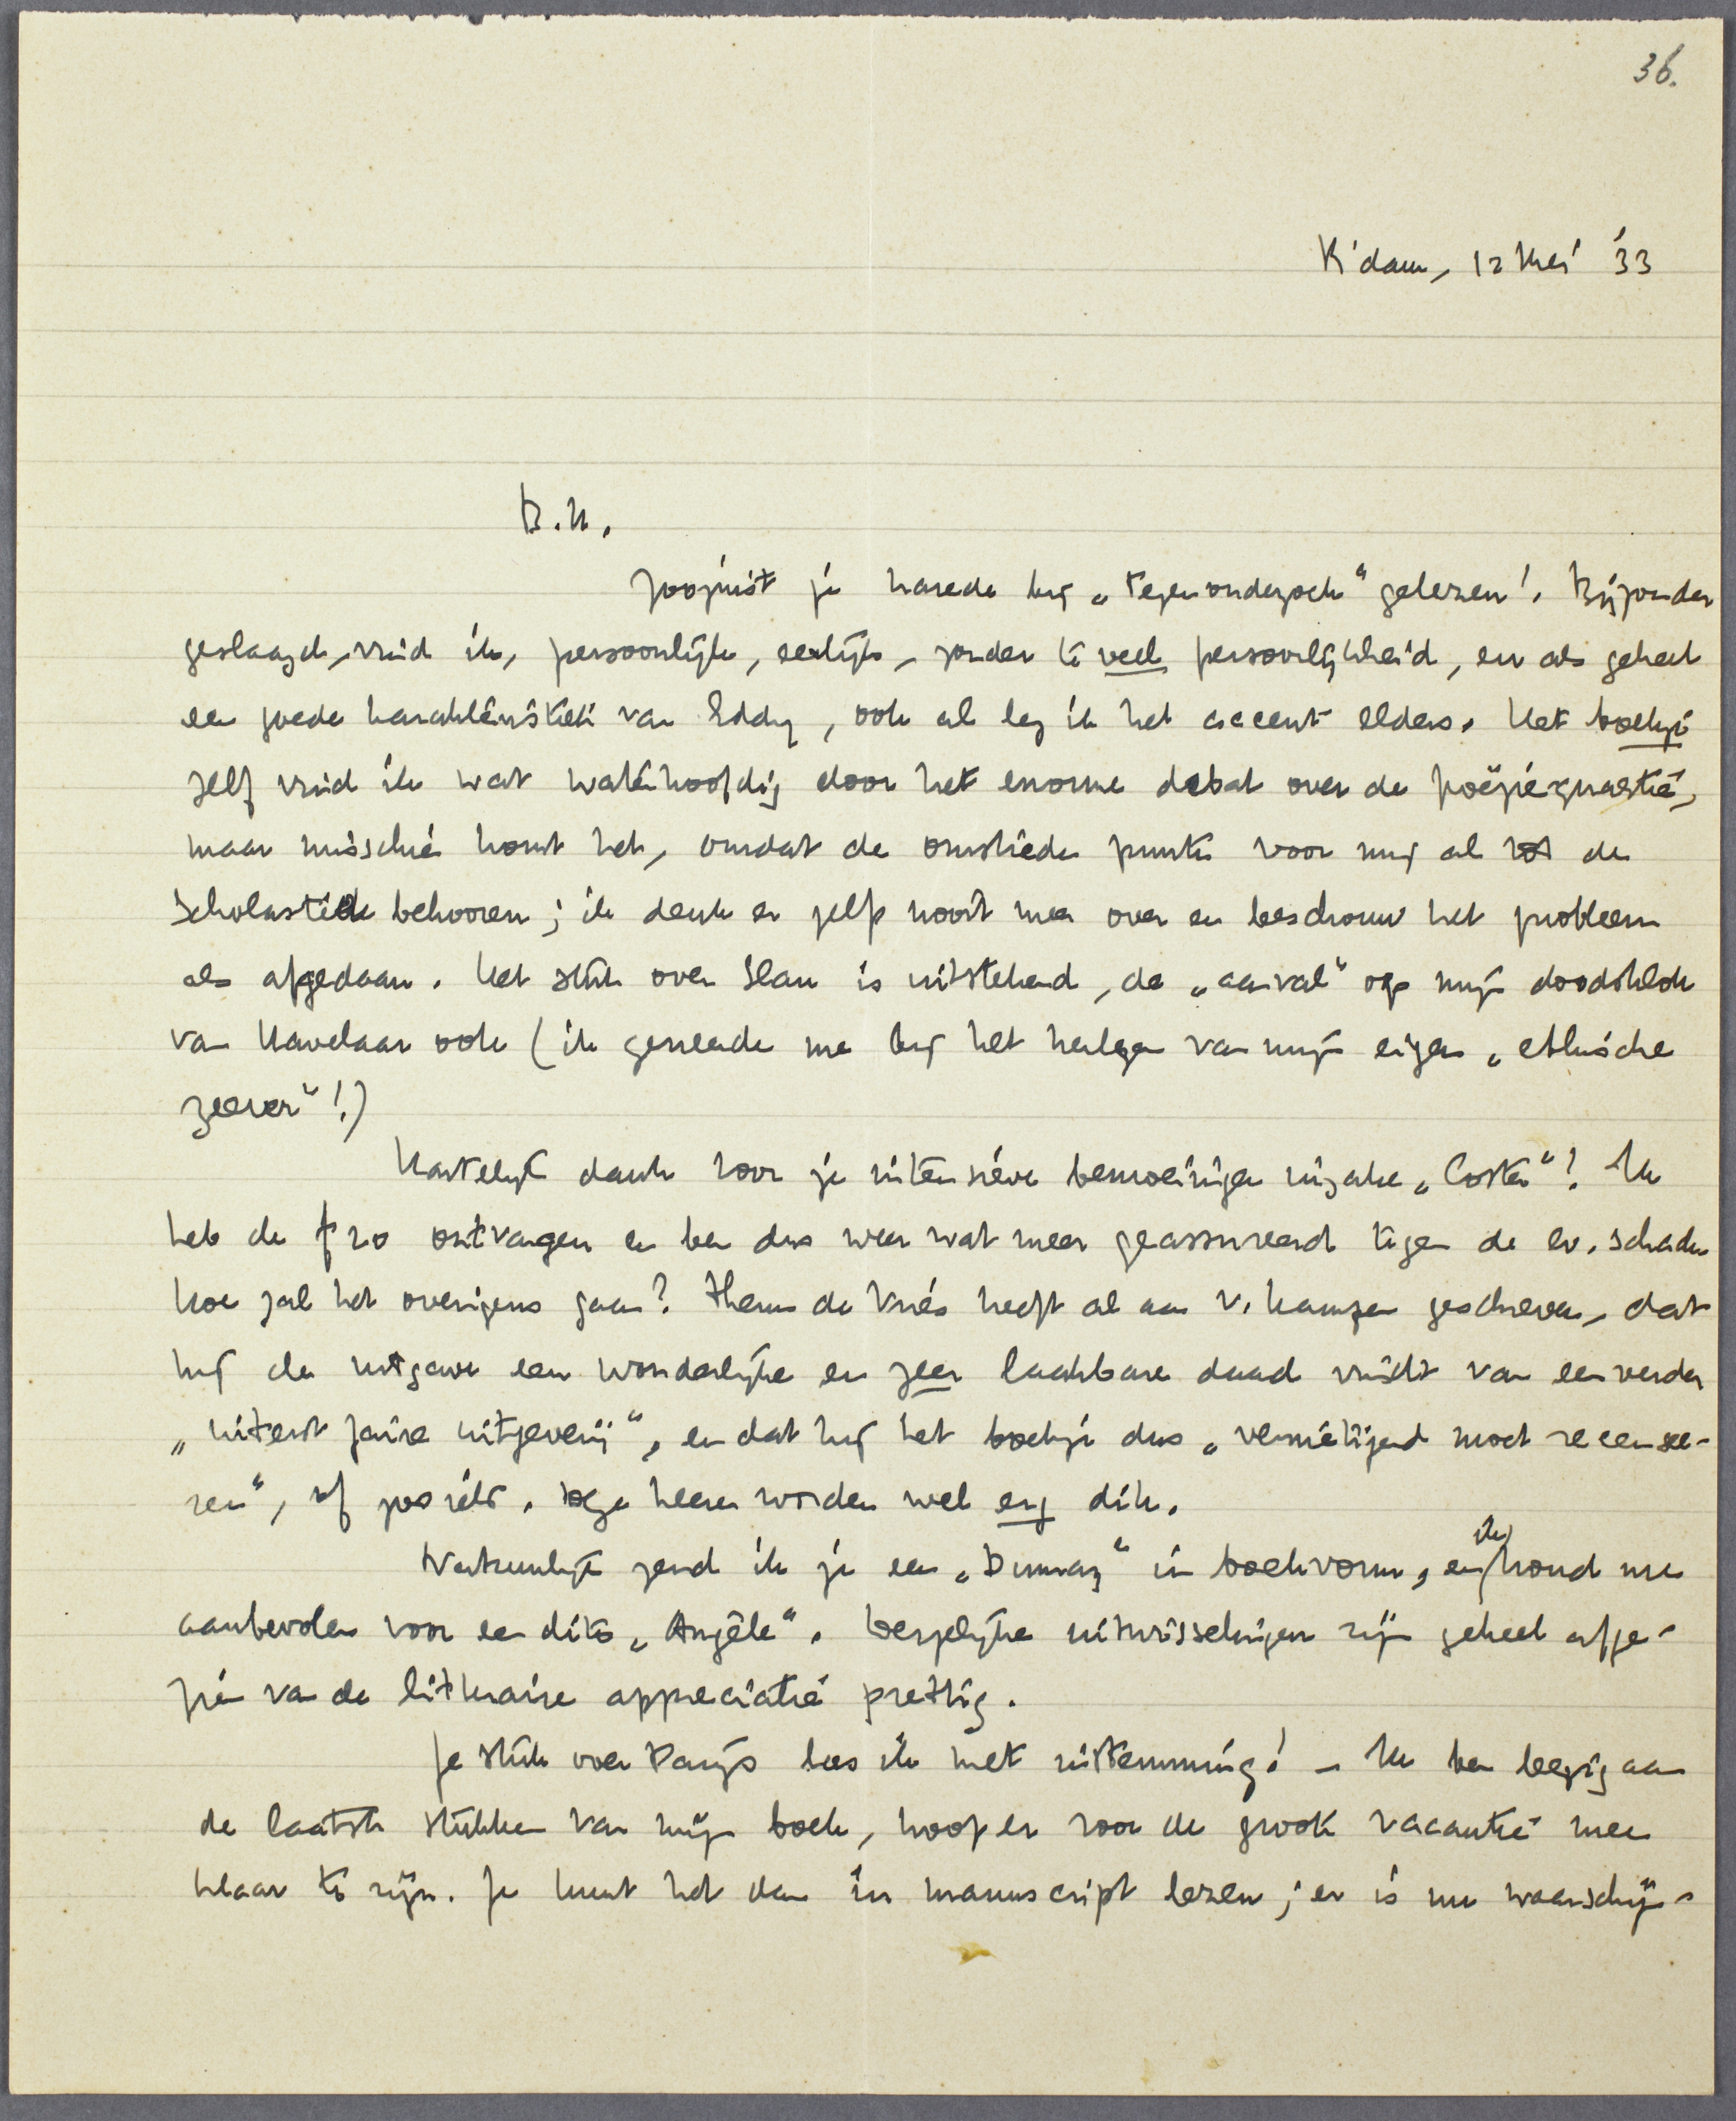 36.
R'dam, 12 Mei '33
B.H.
Zoojuist je harede bij „Tegenonderzoek" gelezen! Bijzonder
geslaagd, vind ik, persoonlijk, eerlijk, zonder te veel persoonlijkheid, en als geheel
een goede karakteristiek van Eddy, ook al leg ik het accent elders. Het boekje
zelf vind ik wat waterhoofdig door het enorme debat over de poëziequaestie,
maar misschien komt het, omdat de omstreden punten voor mij al tot de
scholastiek behooren; ik denk er zelf nooit meer over en beschouw het probleem
als afgedaan. Het stuk over Slau is uitstekend, de „aanval" op mijn doodshoek
van Havelaar ook (ik geneerde me bij het herlezen van mijn eigen „ethische
zeever"!)
Hartelijk dank voor je intensieve bemoeiingen inzake „Coster"! Ik
heb de f 20 ontvangen en ben dus weer wat meer geassureerd tegen de ev. schade
Hoe zal het overigens gaan? Theun de Vries heeft al aan v. Kampen geschreven, dat
hij de uitgave een wonderlijke en zeer laakbare daad vindt van een verder
„uiterst faire uitgeverij", en dat hij het boekje dus „vernietigend moet recensee-
ren", of zooiets. Deze heeren worden wel erg dik.
Natuurlijk zend ik je een „Dumay" in boekvorm, en ik houd me
aanbevolen voor een dito „Angèle". Dergelijke uitwisselingen zijn geheel afge-
zien van de litteraire appreciatie prettig.
Je stuk over Parijs las ik met instemming! – Ik ben bezig aan
de laatste stukken van mijn boek, hoop er voor de groote vacantie mee
klaar te zijn. Je kunt het dan in manuscript lezen; er is nu waarschijn-